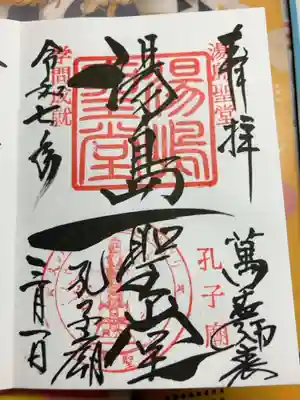 奉拝
湯島聖堂
萬世師表
孔子廟
湯島聖堂
湯嶋聖堂
学問成就
孔子廟
令和七年
三月一日